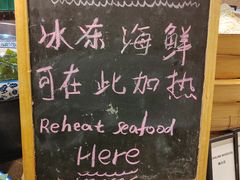 冰冻海鲜
可在此加热
Reheat seafood
Here